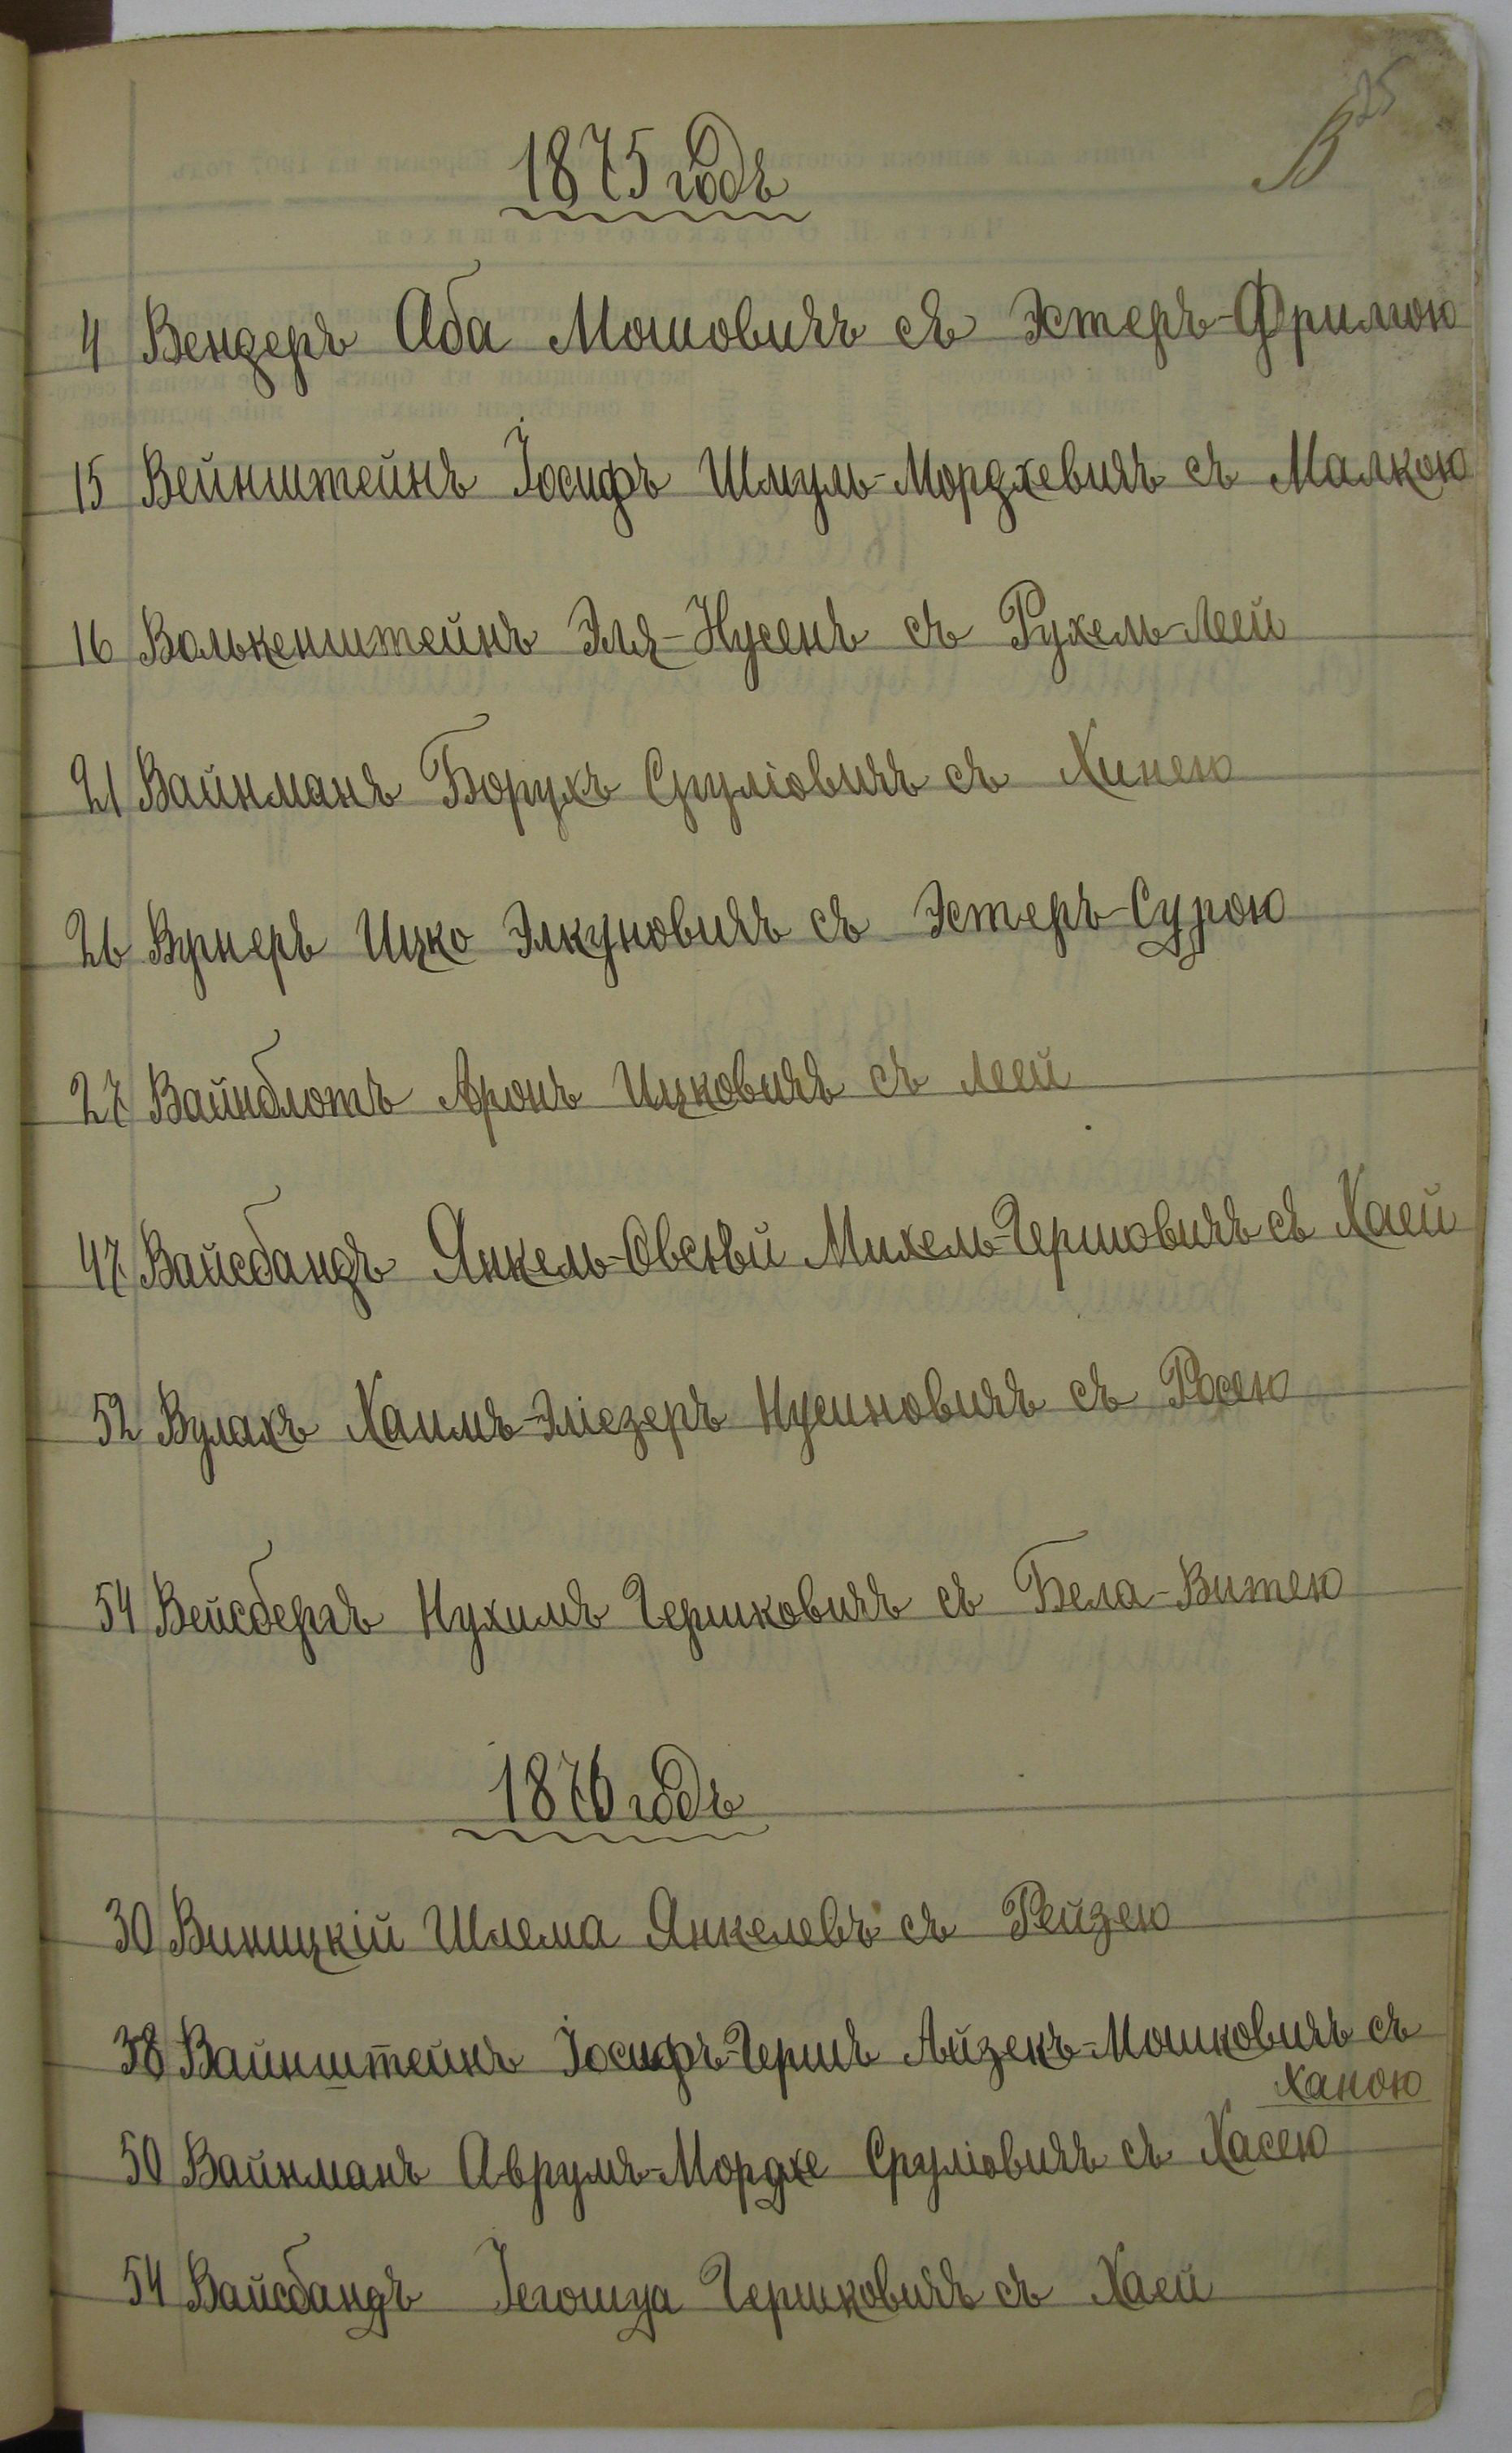 25
В
1875 годъ
4 Вендеръ Аба Мошовичъ съ Эстеръ-Фримою
15 Вейнштейнъ Іосифъ Шмуль-Мордхевичъ съ Малкою
16 Волькенштейнъ Эля-Нусенъ съ Рухель-Леей
21 Вайнманъ Борухъ Сруліовичъ съ Хинею
26 Вурнеръ Ицко Элкуновичъ съ Эстеръ-Сурою
27 Вайнблотъ Аронъ Ицковичъ съ Леей
47 Вайсбандъ Янкель-Овсѣй Михель-Гершовичъ съ Хаей
52 Вулахъ Хаимъ-Эліезеръ Нусиновичъ съ Росею
54 Вейсбергъ Нухимъ Гершковичъ съ Бела-Витею
1876 годъ
30 Виницкій Шлема Янкелевъ съ Рейзею
38 Вайнштейнъ Іосифъ-Гершъ Айзекъ-Мошковичъ съ
Ханою
50 Вайнманъ Аврумъ-Мордхе Сруліовичъ съ Хасею
54 Вайсбандъ Іегошуа Гершковичъ съ Хаей